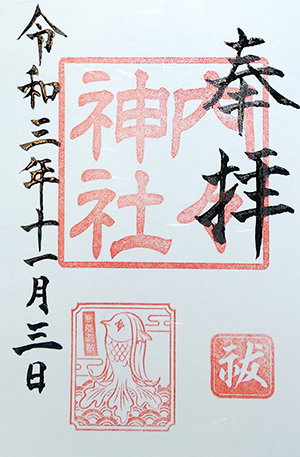 奉拝
内々
神社
令和三年十一月三日
祓